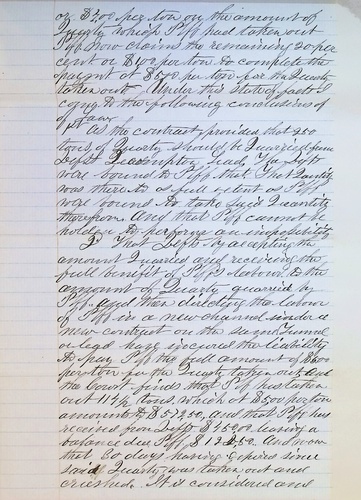 or $4.00 per ton on the amount of
Quartz which Pff had taken out
Pff Now claims the remaining 20 per
cent or $1.00 per ton to complete the
payment at $5.00 per ton for the Quartz
taken out. Under this state of facts I
come to the following conclusions of
of Law
1st As the contract provided that 250
tons of Quartz should be Quarried from
Defts Lead, The Defts
were bound to Pff that that Quantity
was there to as full extent as Pff
were bound to take said Quantity
therefrom. And that Pff cannot be
holden to perform an impossibility
2d That Defts by accepting the
amount Quarried and receiving the
full benefit of Pff's labour to the
amount of Quartz quarried by
Pff. And then directing the labour
of Pff in a new channel under a
new contract on the same Tunnel
or legd have incured the liability
to pay Pff the full amount of $5.00
per ton for the Quartz taken out. And
the Court finds that Pff has taken
out 114½ tons, which at $5.00 per ton
amounts to $572.50, And that Pff has
received from Defts $450.00 leaving a
balance due Pff $122.50. And now
that 60 days having expired since
said Quartz was taken out and
crushed. It is considered and